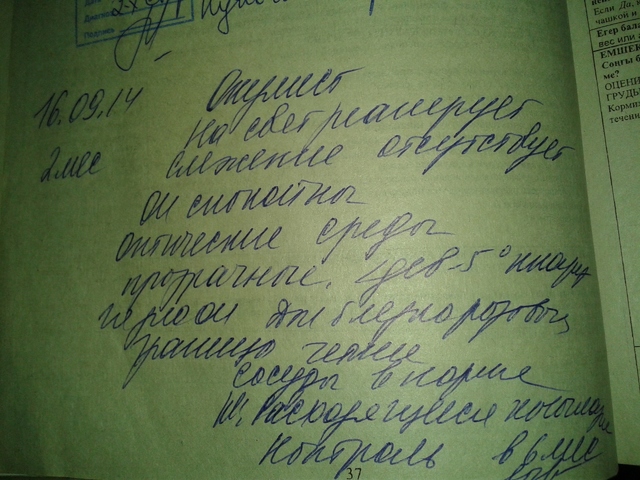 16.09.14 Окулист
2 мес На свет реагирует
слежение отсутствует
ОИ спокойны
оптические среды
прозрачные. <дев-5°
ДЗН бледнорозовый
границы четкие
сосуды в норме
Ds: Расходящееся косоглазие
Контроль в 6 мес
37
Если Да,
чашкой и
Егер бала
вес или
ЕМШЕК
Соңғы б
ме?
ОЦЕНИ
ГРУДЬ
Корми
течени